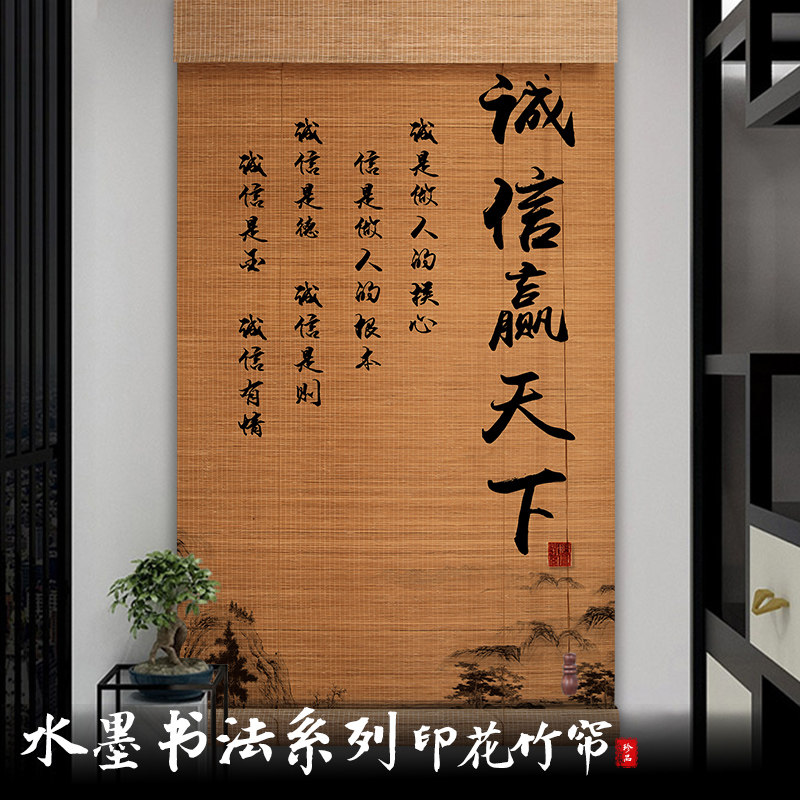 诚信赢天下
诚是做人的核心
信是做人的根本
诚信是德 诚信是则
诚信是玉 诚信有情
水墨书法系列印花竹帘
珍品